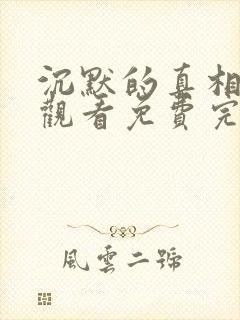 沉默的真相
觀看免費完
風雲二號